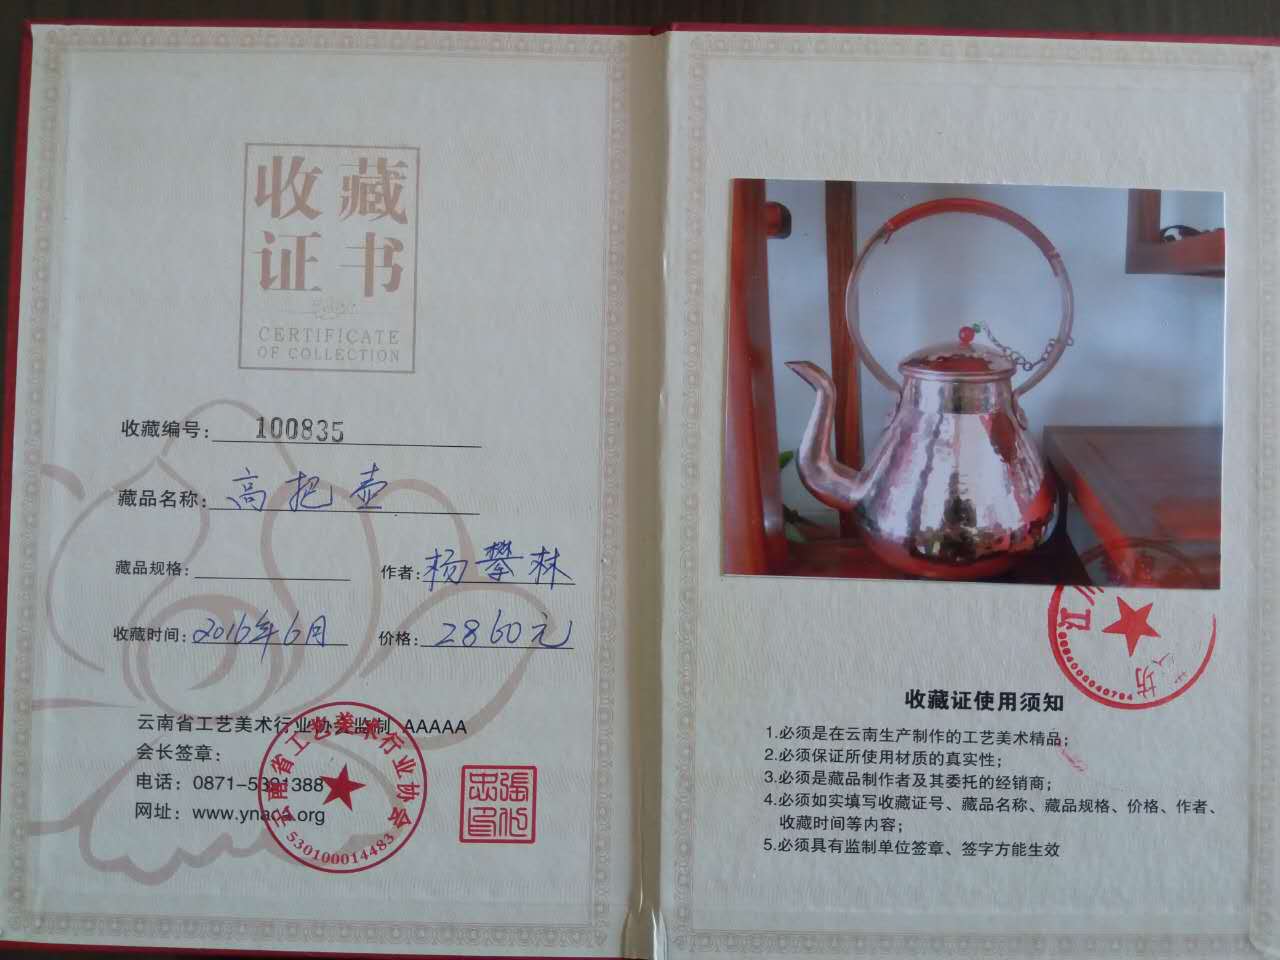 收藏
证书
CERTIFICATE
OF COLLECTION
收藏编号：100835
藏品名称：高把壶
藏品规格： 作者：杨攀林
收藏时间：2016年6月 价格：2860元
云南省工艺美术行业协会监制 AAAAA
会长签章：
电话：0871-5321388
网址：www.ynaca.org
云南省工艺美术行业协会
530100014483
收藏证使用须知
1.必须是在云南生产制作的工艺美术精品；
2.必须保证所使用材质的真实性；
3.必须是藏品制作者及其委托的经销商；
4.必须如实填写收藏证号、藏品名称、藏品规格、价格、作者、
收藏时间等内容；
5.必须具有监制单位签章、签字方能生效